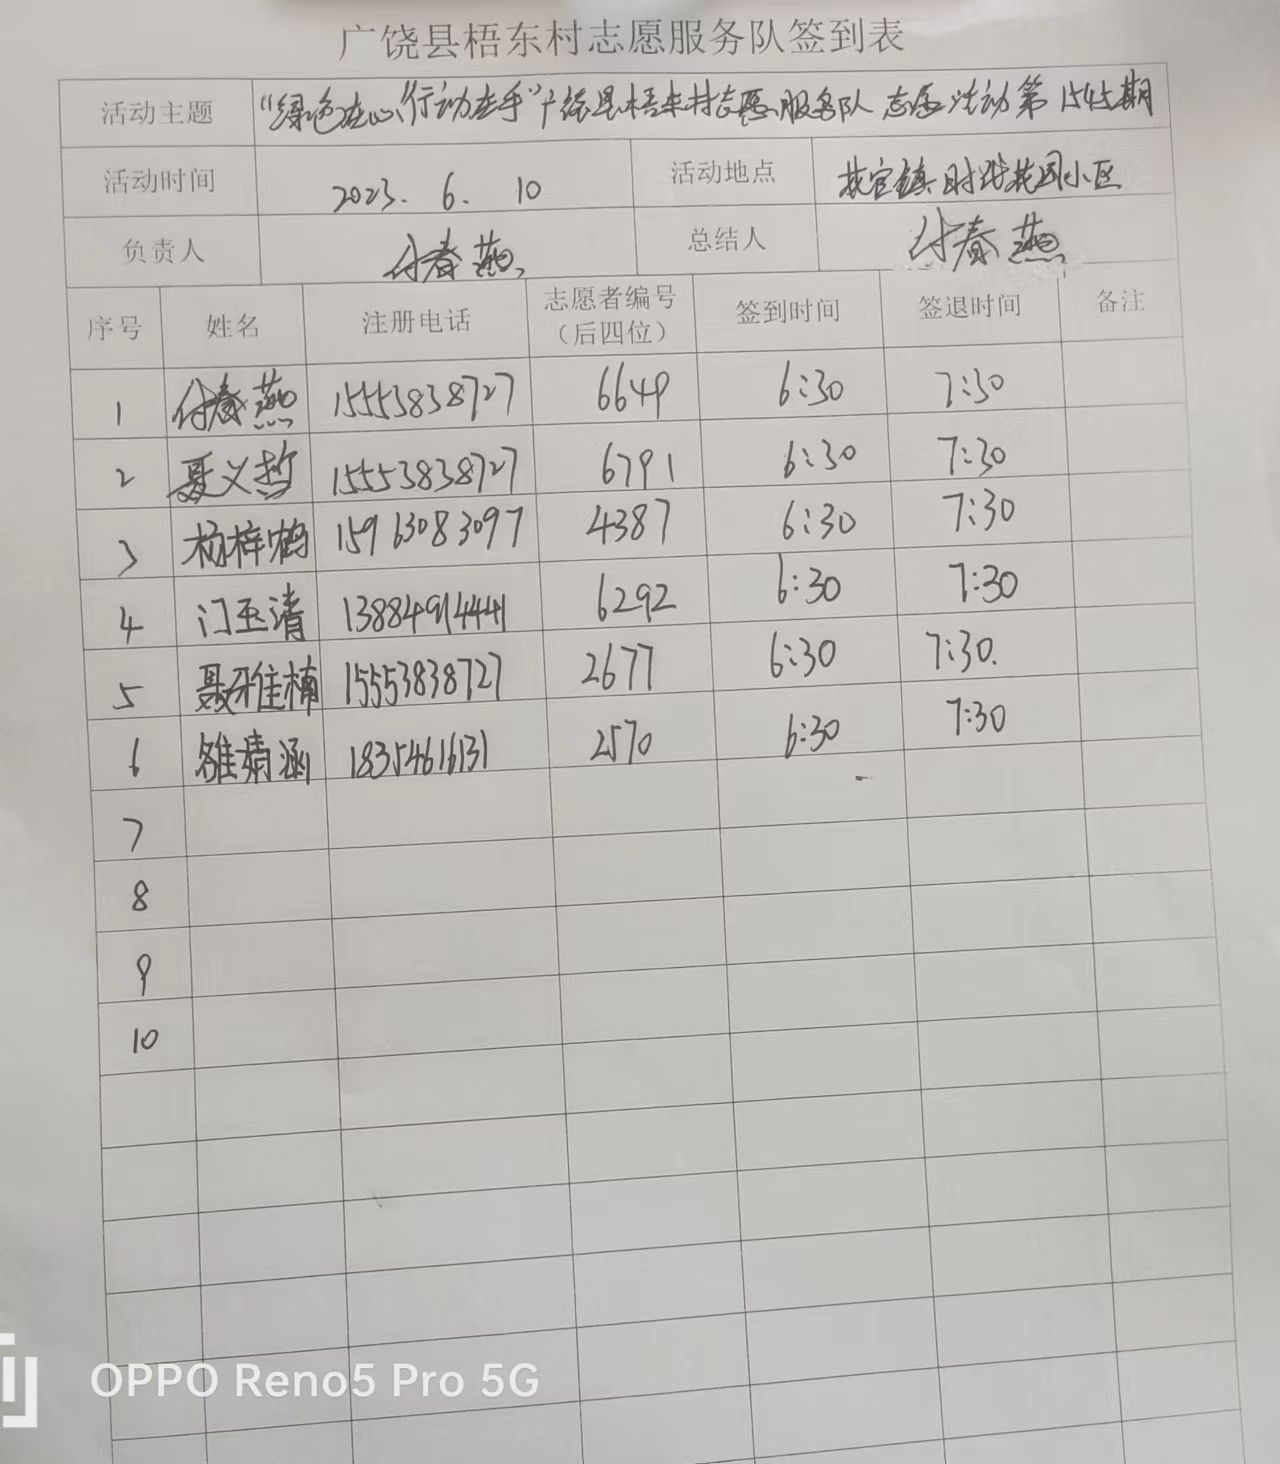 广饶县梧东村志愿服务队签到表
活动主题 “绿色在心、行动在手”广饶县梧东村志愿服务队志愿活动第1545期
活动时间 2023. 6. 10 活动地点 花官镇时代花园小区
负责人 付春燕 总结人 付春燕
序号 姓名 注册电话 志愿者编号 签到时间 签退时间 备注
（后四位）
1 付春燕 15553838727 6649 6:30 7:30
2 聂义哲 15553838727 6791 6:30 7:30
3 杨梓鹤 15963083097 4387 6:30 7:30
4 门玉清 13884914441 6292 6:30 7:30
5 聂雅楠 15553838727 2677 6:30 7:30.
6 雒婧涵 18354616131 2570 6:30 7:30
7
8
9
10
OPPO Reno5 Pro 5G